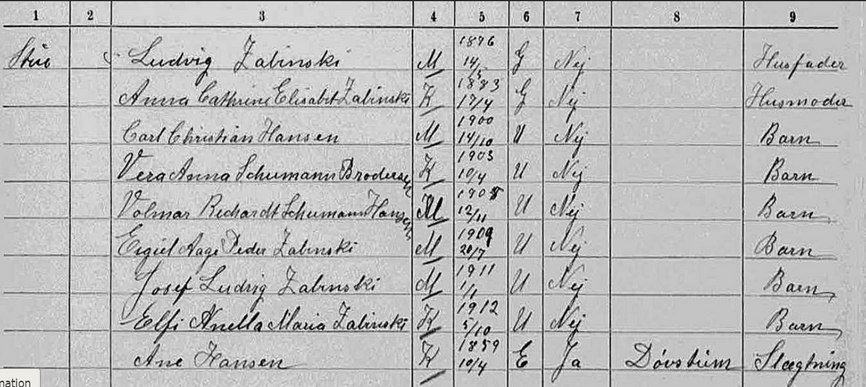 1 2 3 4 5 6 7 8 9
Stuo Ludvig Zabinski M 1876 14/5 G Nej Husfader
Anna Cathrine Elisabet Zabinski K 1883 17/4 G Nej Husmoder
Carl Christian Hansen M 1900 14/10 U Nej Barn
Vera Anna Schumann Brodersen K 1903 10/4 U Nej Barn
Volmar Rechardt Schumann Hansen M 1905 12/11 U Nej Barn
Eigiel Aage Peder Zabinski M 1909 20/7 U Nej Barn
Josef Ludvig Zabinski M 1911 1/1 U Nej Barn
Elfi Anella Maria Zabinski K 1912 5/10 U Nej Barn
Ane Hansen K 1859 10/4 E Ja Døvstum Slægtning
nation